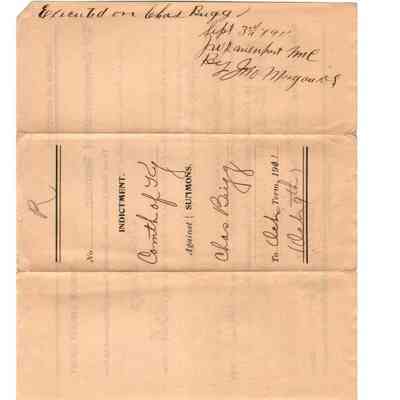 Executed on Chas Bugg
Sept 3rd 1901
J W Davenport
By Jno Morgan D.S
R
No
INDICTMENT.
Comth of Ky
Against } SUMMONS.
Chas Bugg
To Oct Term, 190